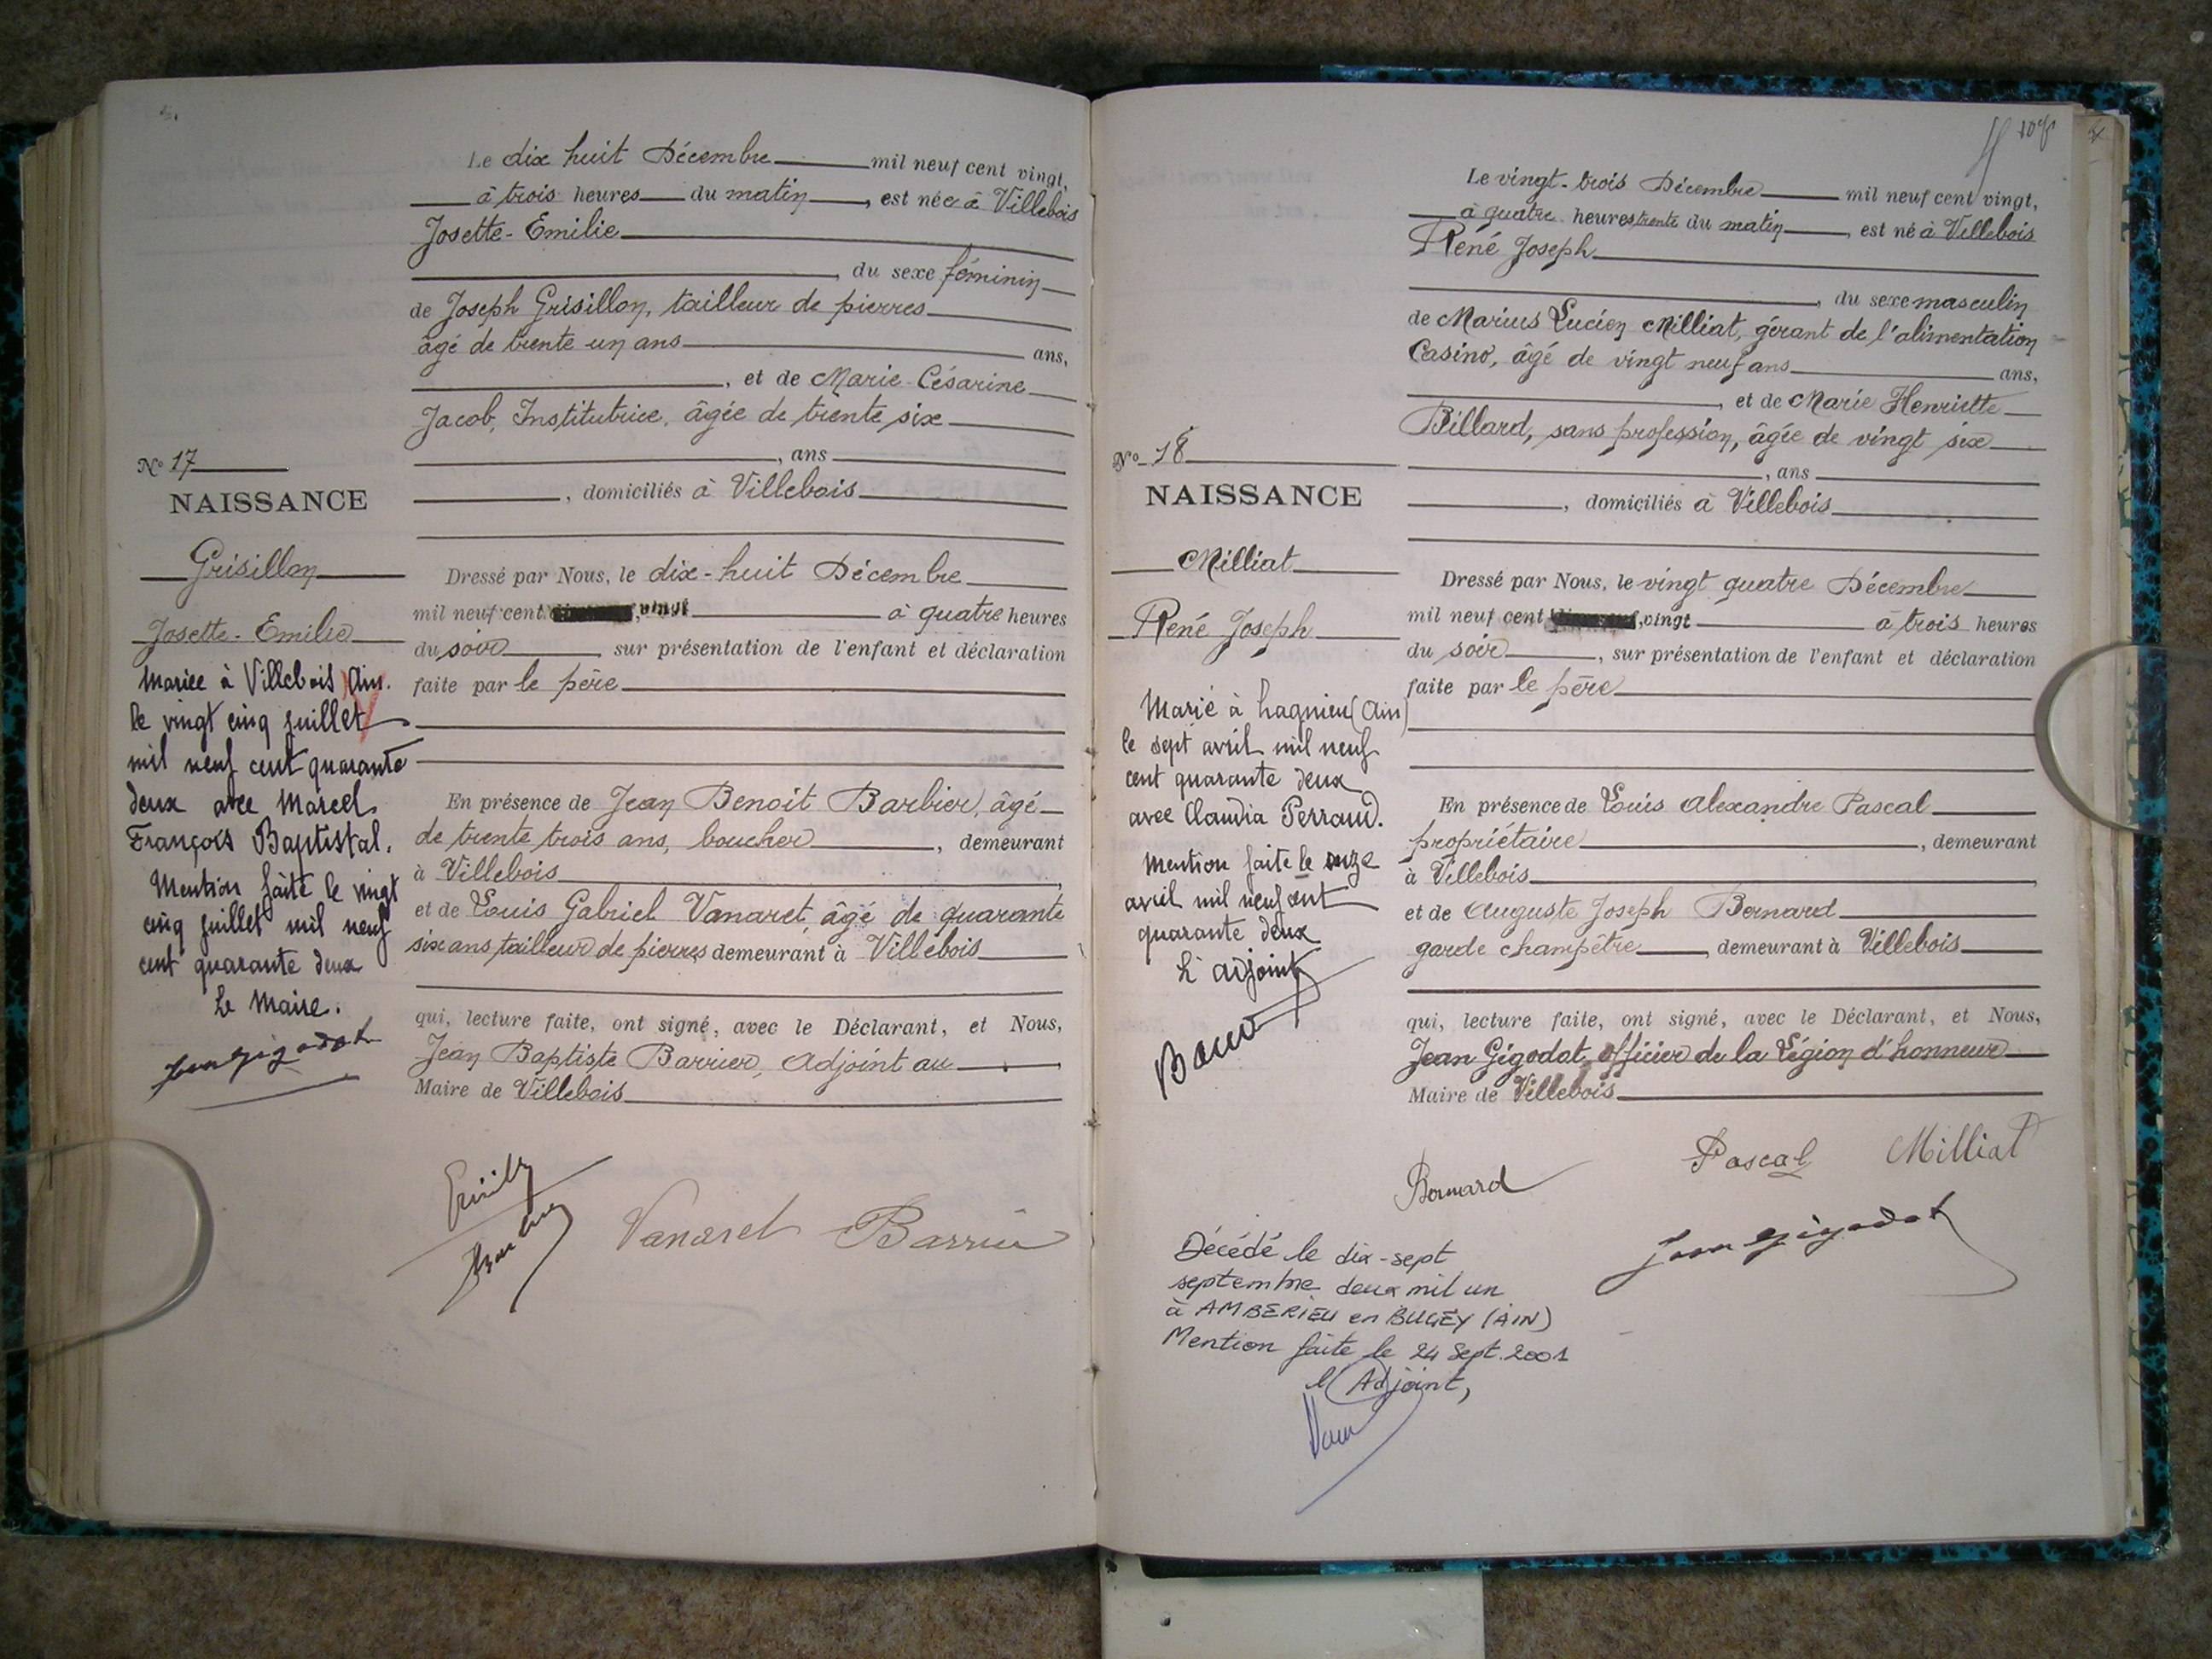 N° 17
NAISSANCE
Grisillon
Josette-Emilie
Mariée à Villebois Ain.
le vingt cinq juillet
mil neuf cent quarante
deux avec Marcel
François Baptistal.
Mention faite le vingt
cinq juillet mil neuf
cent quarante deux
Le Maire.
Jean Gigodot
Le dix huit Décembre mil neuf cent vingt,
à trois heures du matin, est née à Villebois
Josette-Emilie
, du sexe féminin
de Joseph Grisillon, tailleur de pierres
âgé de trente un ans ans,
, et de Marie-Césarine
Jacob, Institutrice, âgée de trente six
, ans
, domiciliés à Villebois
Dressé par Nous, le dix-huit Décembre
mil neuf cent , vingt à quatre heures
du soir sur présentation de l'enfant et déclaration
faite par le père
En présence de Jean Benoit Barbier, âgé
de trente trois ans, boucher, demeurant
à Villebois,
et de Louis Gabriel Vanaret, âgé de quarante
six ans tailleur de pierres demeurant à Villebois
qui, lecture faite, ont signé, avec le Déclarant, et Nous,
Jean Baptiste Barrier, Adjoint au
Maire de Villebois
Vanaret Barrier
N° 18
NAISSANCE
Milliat
René Joseph
Marié à Lagnieu (Ain)
le sept avril mil neuf
cent quarante deux
avec Claudia Perraud.
Mention faite le onze
avril mil neuf cent
quarante deux
L'adjoint
Le vingt-trois Décembre mil neuf cent vingt,
à quatre heures trente du matin, est né à Villebois
René Joseph
, du sexe masculin
de Marius Lucien Milliat, gérant de l'alimentation
Casino, âgé de vingt neuf ans ans,
, et de Marie Henriette
Billard, sans profession, âgée de vingt six
, ans
, domiciliés à Villebois
Dressé par Nous, le vingt quatre Décembre
mil neuf cent , vingt à trois heures
du soir, sur présentation de l'enfant et déclaration
faite par le père
En présence de Louis Alexandre Pascal
propriétaire, demeurant
à Villebois,
et de Auguste Joseph Bernard
garde champêtre, demeurant à Villebois
qui, lecture faite, ont signé, avec le Déclarant, et Nous,
Jean Gigodot, officier de la Légion d'honneur
Maire de Villebois
Bernard Pascal Milliat
Jean Gigodot
Décédé le dix-sept
septembre deux mil un
à AMBERIEU en BUGEY (AIN)
Mention faite le 24 Sept. 2001
l'Adjoint,